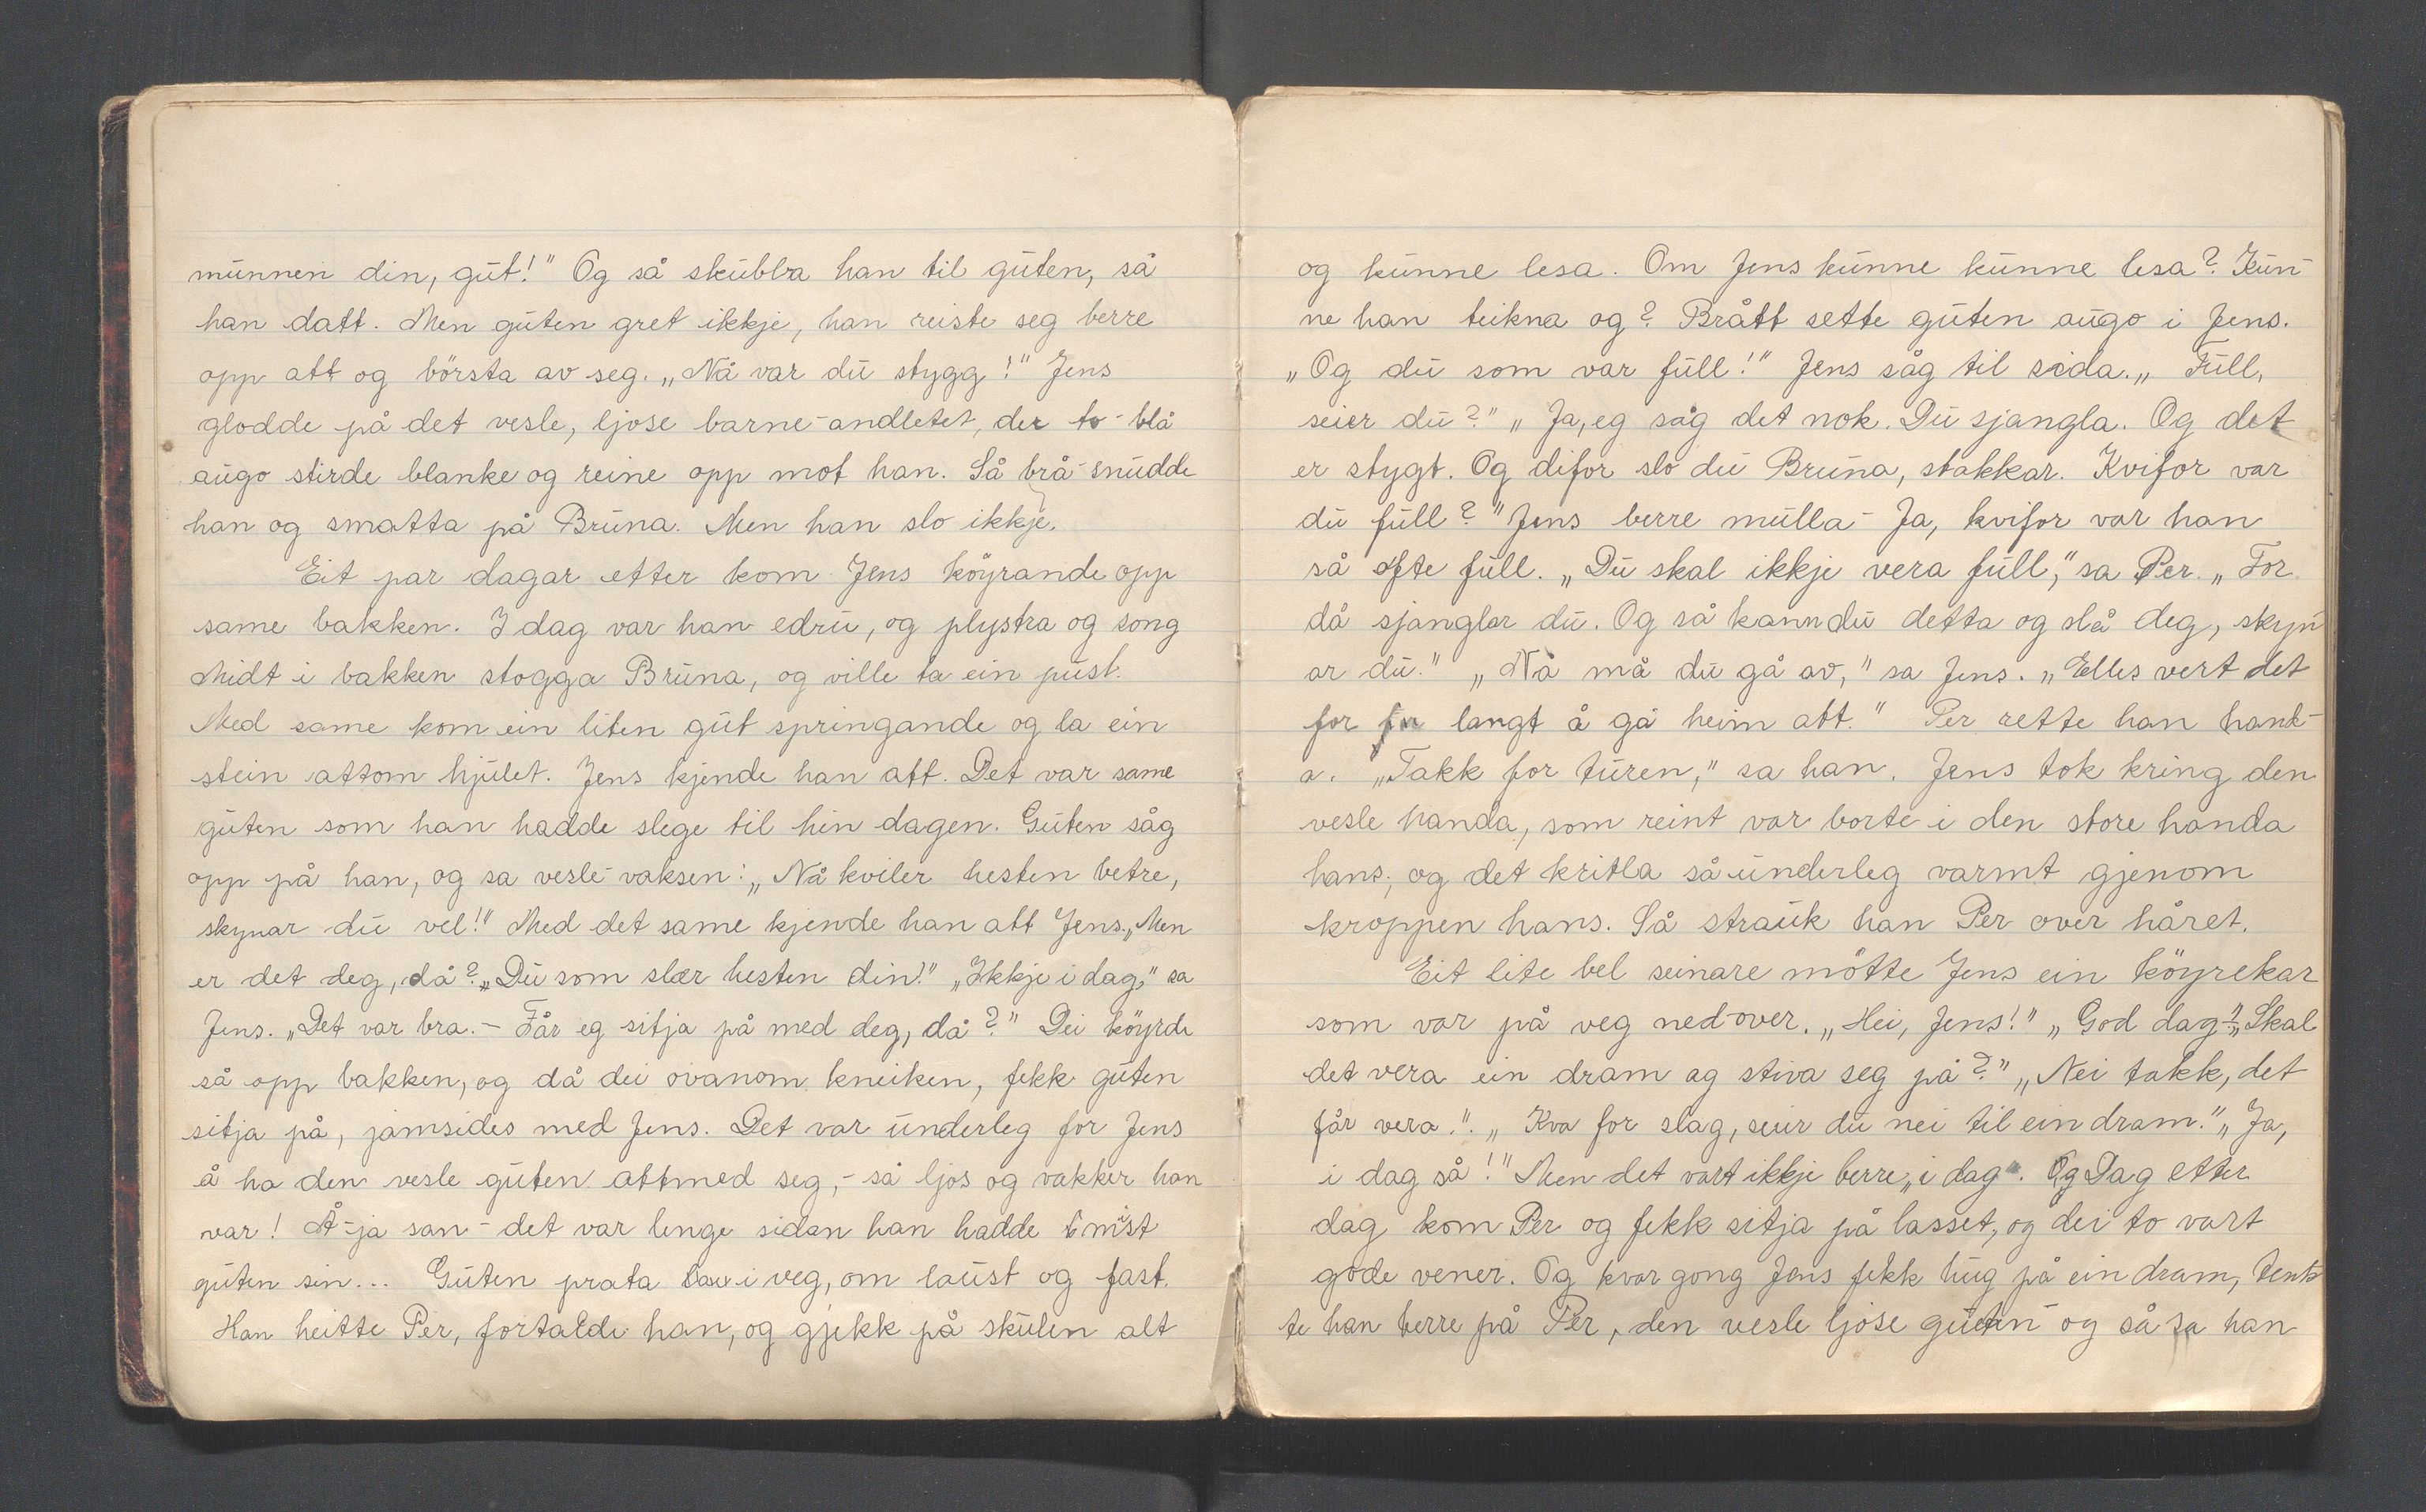 munnen din, gut!" Og så skubba han til guten, så
han datt. Men guten gret ikkje, han reiste seg berre
opp att og börsta av seg. „Nå var du stygg!" Jens
glodde på det vesle, ljose barne-andletet, der to blå
augo stirde blanke og reine opp mot han. Så brå-snudde
han og smatta på Bruna. Men han slo ikkje.
Eit par dagar etter kom Jens köyrande opp
same bakken. I dag var han edru, og plystra og song
Midt i bakken stogga Bruna, og ville ta ein pust.
Med same kom ein liten gut springande og la ein
stein attom hjulet. Jens kjende han att. Det var same
guten som han hadde slege til hin dagen. Guten såg
opp på han, og sa vesle-vaksen: „Nå kviler hesten betre,
skynar du vel!" Med det same kjende han att Jens. „Men
er det deg, då? „Du som slær hesten din!" „Ikkje i dag," sa
Jens. „Det var bra. - Får eg sitja på med deg, då?" Dei köyrde
så opp bakken, og då dei ovanom kneiken, fekk guten
sitja på, jamsides med Jens. Det var underleg for Jens
å ha den vesle guten attmed seg, - så ljos og vakker han
var! Å-ja san - det var lenge sidan han hadde mist
guten sin... Guten prata i veg, om laust og fast.
Han heitte Per, fortalde han, og gjekk på skulen alt
og kunne lesa. Om Jens kunne kunne lesa? Kun-
ne han teikna og? Brått sette guten augo i Jens.
„Og du som var full!" Jens såg til sida. „Full,
seier du?" „Ja, eg såg det nok. Du sjangla. Og det
er stygt. Og difor slo du Bruna, stakkar. Kvifor var
du full?" Jens berre mulla - Ja, kvifor var han
så ofte full. „Du skal ikkje vera full," sa Per. „For
då sjanglar du. Og så kann du detta og slå deg, skyn
ar du." „Nå må du gå av," sa Jens. „Elles vert det
for langt å gå heim att." Per rette han hand-
a. „Takk for turen," sa han. Jens tok kring den
vesle handa, som reint var borte i den store handa
hans, og det kritla så underleg varmt gjenom
kroppen hans. Så strauk han Per over håret.
Eit lite bel seinare mötte Jens ein köyrekar
som var på veg ned-over. „Hei, Jens!" „God dag." „Skal
det vera ein dram og stiva seg på?" „Nei takk, det
får vera." „Kva for slag, seier du nei til ein dram." „Ja,
i dag så!" Men det vart ikkje berre „i dag". Dag etter
dag kom Per og fekk sitja på lasset, og dei to vart
gode vener. Og kvar gong Jens fekk hug på ein dram, tenk-
te han berre på Per, den vesle ljose guten og så sa han